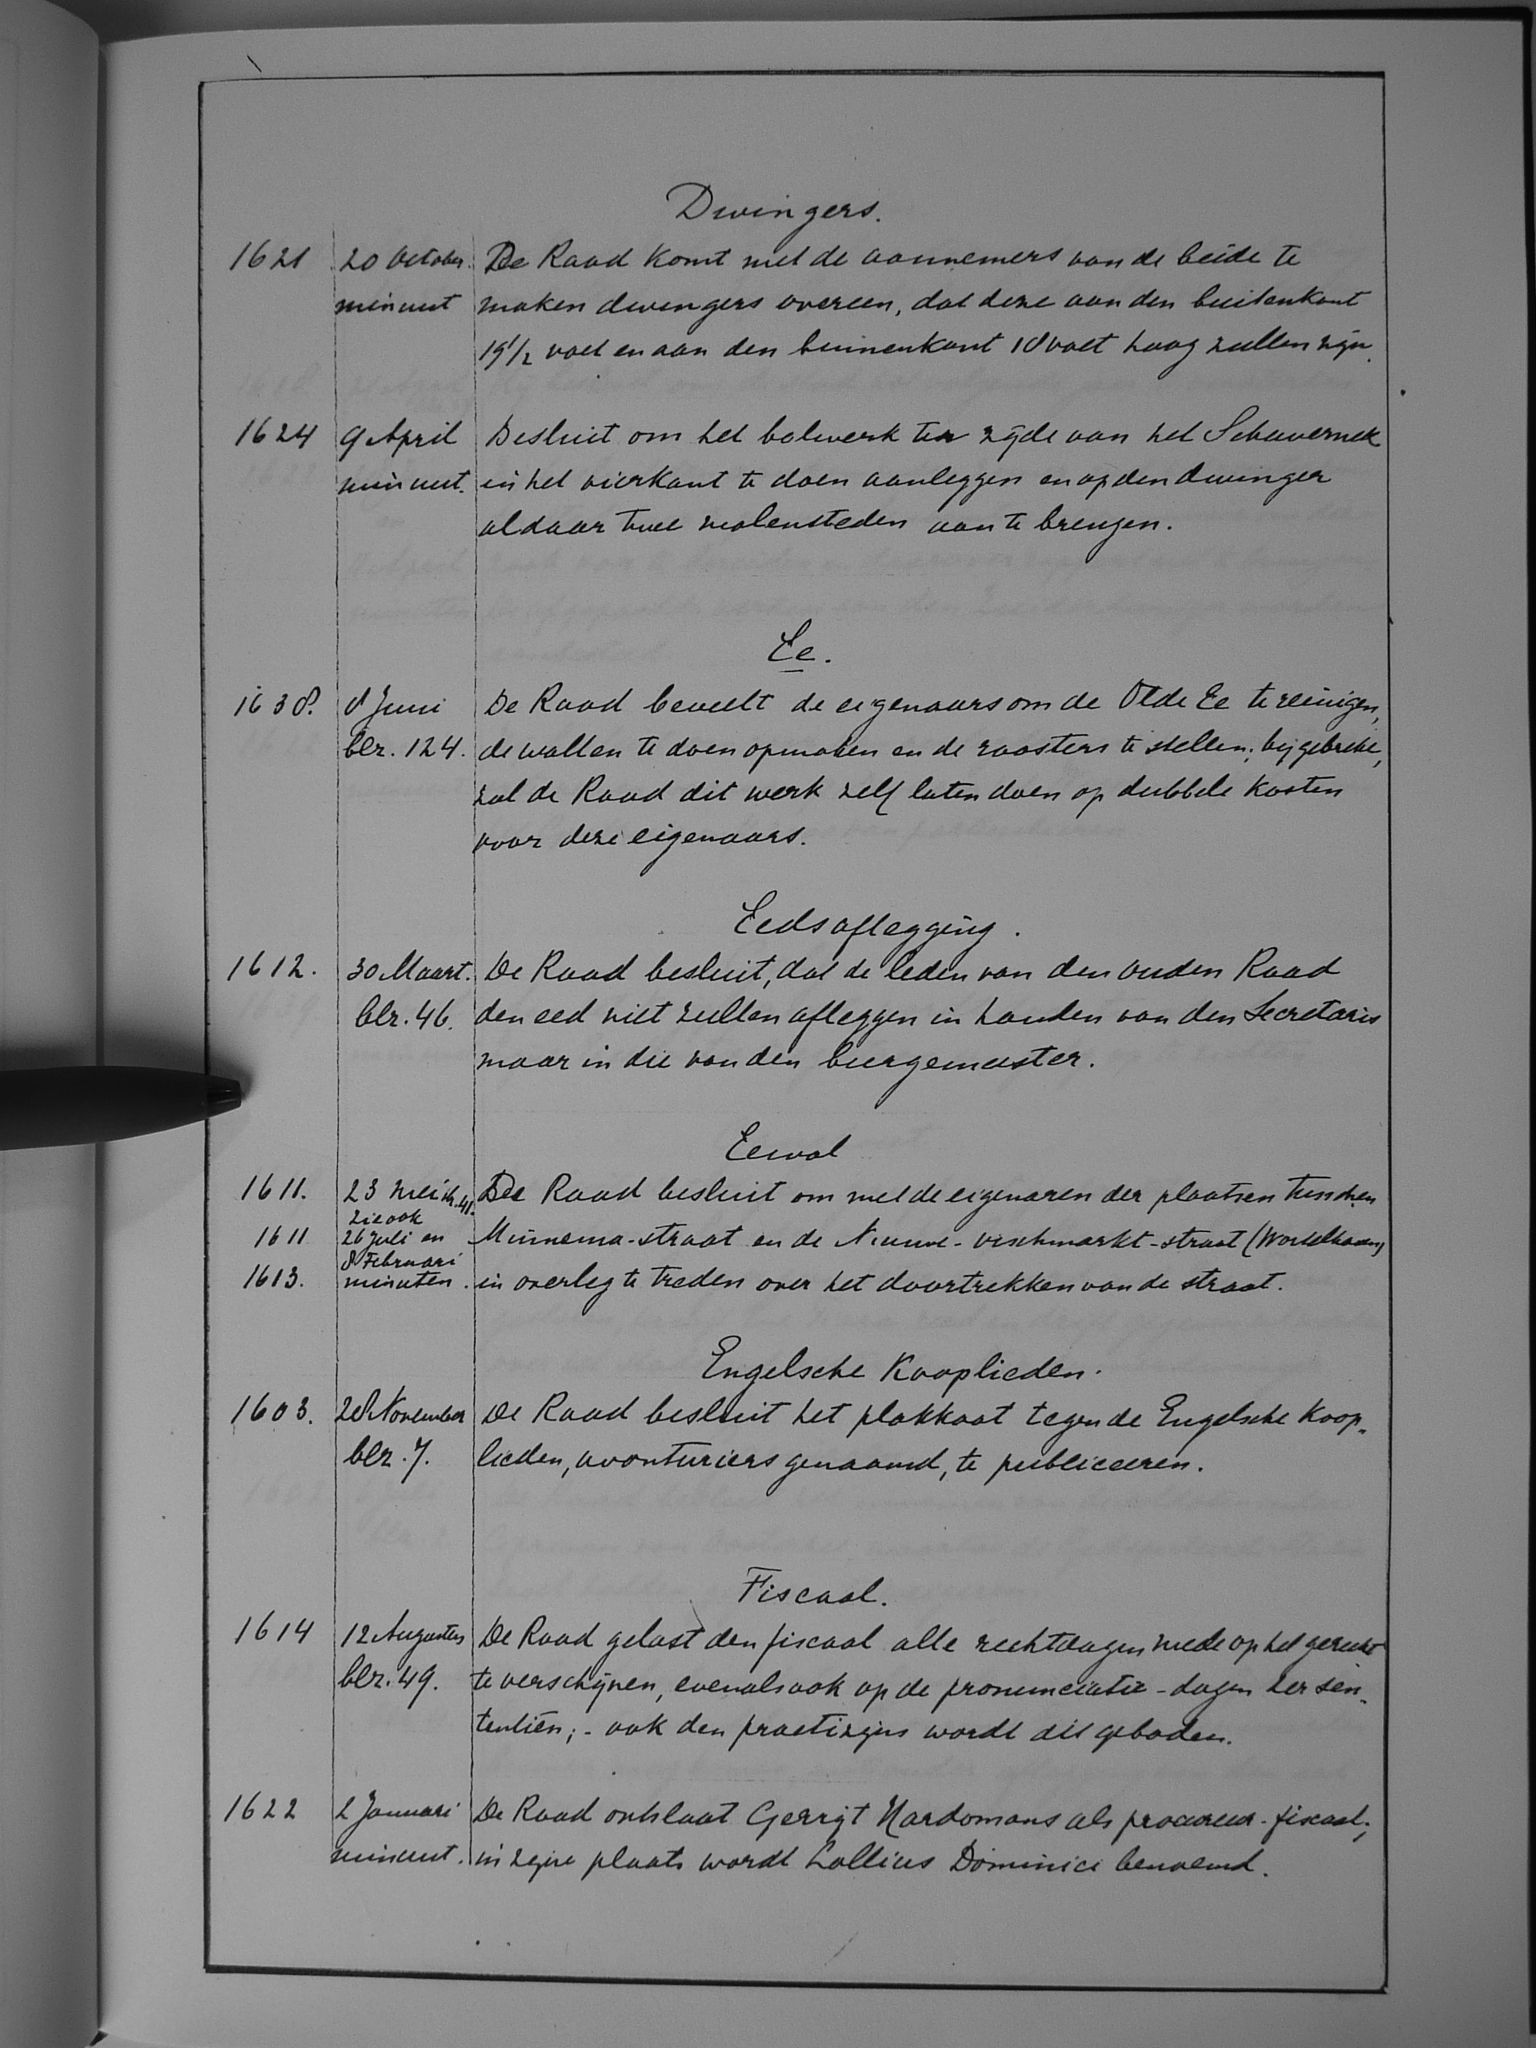 Dwingers.
1621 20 October De Raad komt met de aannemers van de beide te
minuut maken dwingers overeen, dat deze aan den buitenkant
19½ voet en aan den binnenkant 18 voet hoog zullen zijn.
1624 9 April Besluit om het bolwerk ter zijde van het Schavernek
minuut. in het vierkant te doen aanleggen en op den dwinger
aldaar twee molensteden aan te brengen.
Ee.
1638. 8 Juni De Raad beveelt de eigenaars om de Olde Ee te reinigen,
blz. 124. de wallen te doen opmaken en de roosters te stellen; bij gebreke,
zal de Raad dit werk zelf laten doen op dubbele kosten
voor deze eigenaars.
Eedsaflegging.
1612. 30 Maart. De Raad besluit, dat de leden van den ouden Raad
blz. 46. den eed niet zullen afleggen in handen van den Secretaris
maar in die van den burgemeester.
Eewal
1611. 23 Mei blz. 41. De Raad besluit om met de eigenaren der plaatsen tusschen
zie ook
1611 26 Juli en Minnema-straat en de Nieuwe-vischmarkt-straat (Wortelhaven)
8 Februari
1613. minuten. in overleg te treden over het doortrekken van de straat.
Engelsche Kooplieden.
1603. 28 November De Raad besluit het plakkaat tegen de Engelsche Koop-
blz. 7. lieden, avonturiers genaamd, te publiceeren.
Fiscaal.
1614 12 Augustus De Raad gelast den fiscaal alle rechtdagen mede op het gerecht
blz. 49. te verschijnen, evenals ook op de pronunciatie-dagen der sen-
tentiën; - ook den practizijns wordt dit geboden.
1622 2 Januari De Raad ontslaat Gerrijt Nardomans als procureur-fiscaal;
minuut. in zijne plaats wordt Lollius Dominici benoemd.